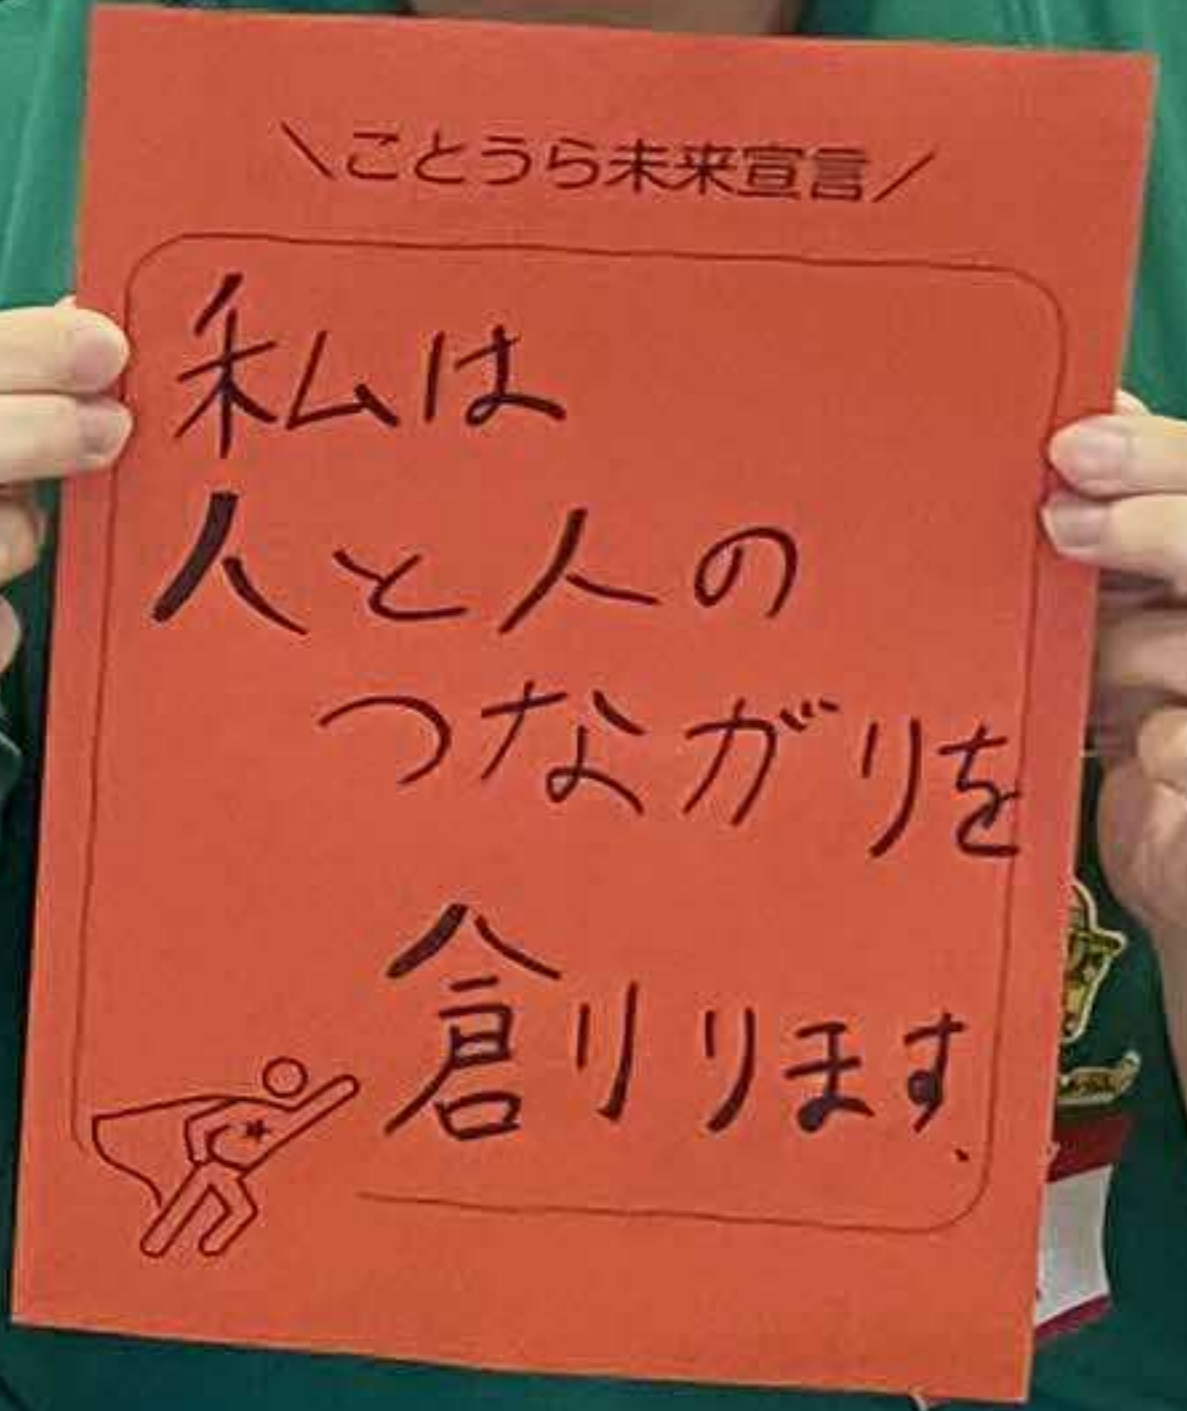 \ことうら未来宣言/
私は
人と人の
つながりを
創ります、